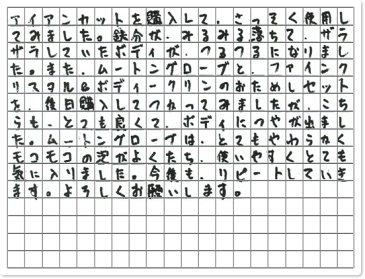 アイアンカットを購入して、さっそく使用し
てみました。鉄分が、みるみる落ちて、ザラ
ザラしていたボディが、つるつるになりまし
た。また、ムートングローブと、ファインク
リスタル&ボディークリンのおためしセット
を、後日購入してつかってみましたが、こち
らも、とっも良くて、ボディにつやが出まし
た。ムートングローブは、とてもやわらかく
モコモコの泡がよくたち、使いやすくとても
気に入りました。今後も、リピートしていき
ます。よろしくお願いします。